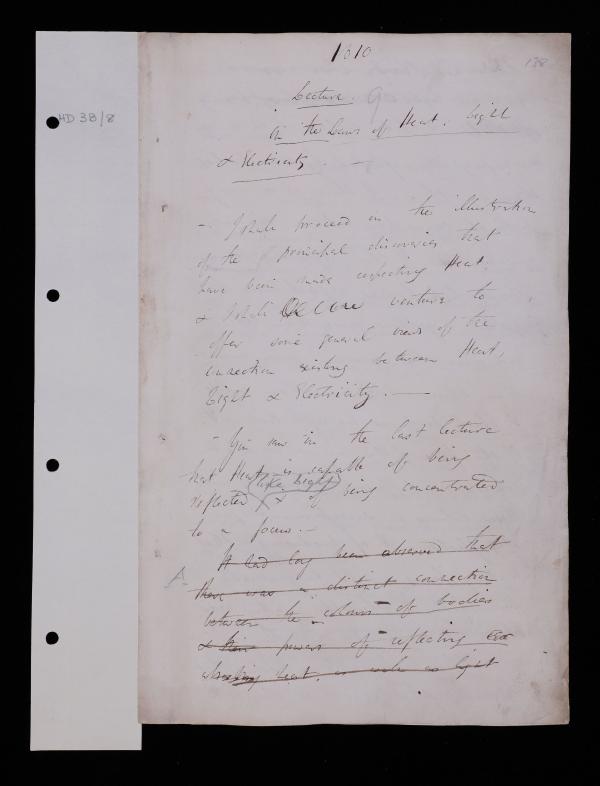 1810
138
HD 38/8
Lecture. 9
On the Laws of Heat, Light
& Electricity. —
— I shall proceed in the illustration
of the principal discoveries that
have been made respecting Heat,
& I shall venture to
offer some general views of the
connection existing between Heat,
Light & Electricity. —
— You saw in the last lecture
that Heat is capable of being
like light
reflected & of being concentrated
to a focus. —
It had long been observed that
A
there was a distinct connection
between the colours of bodies
& their powers of reflecting &
absorbing heat, as well as light